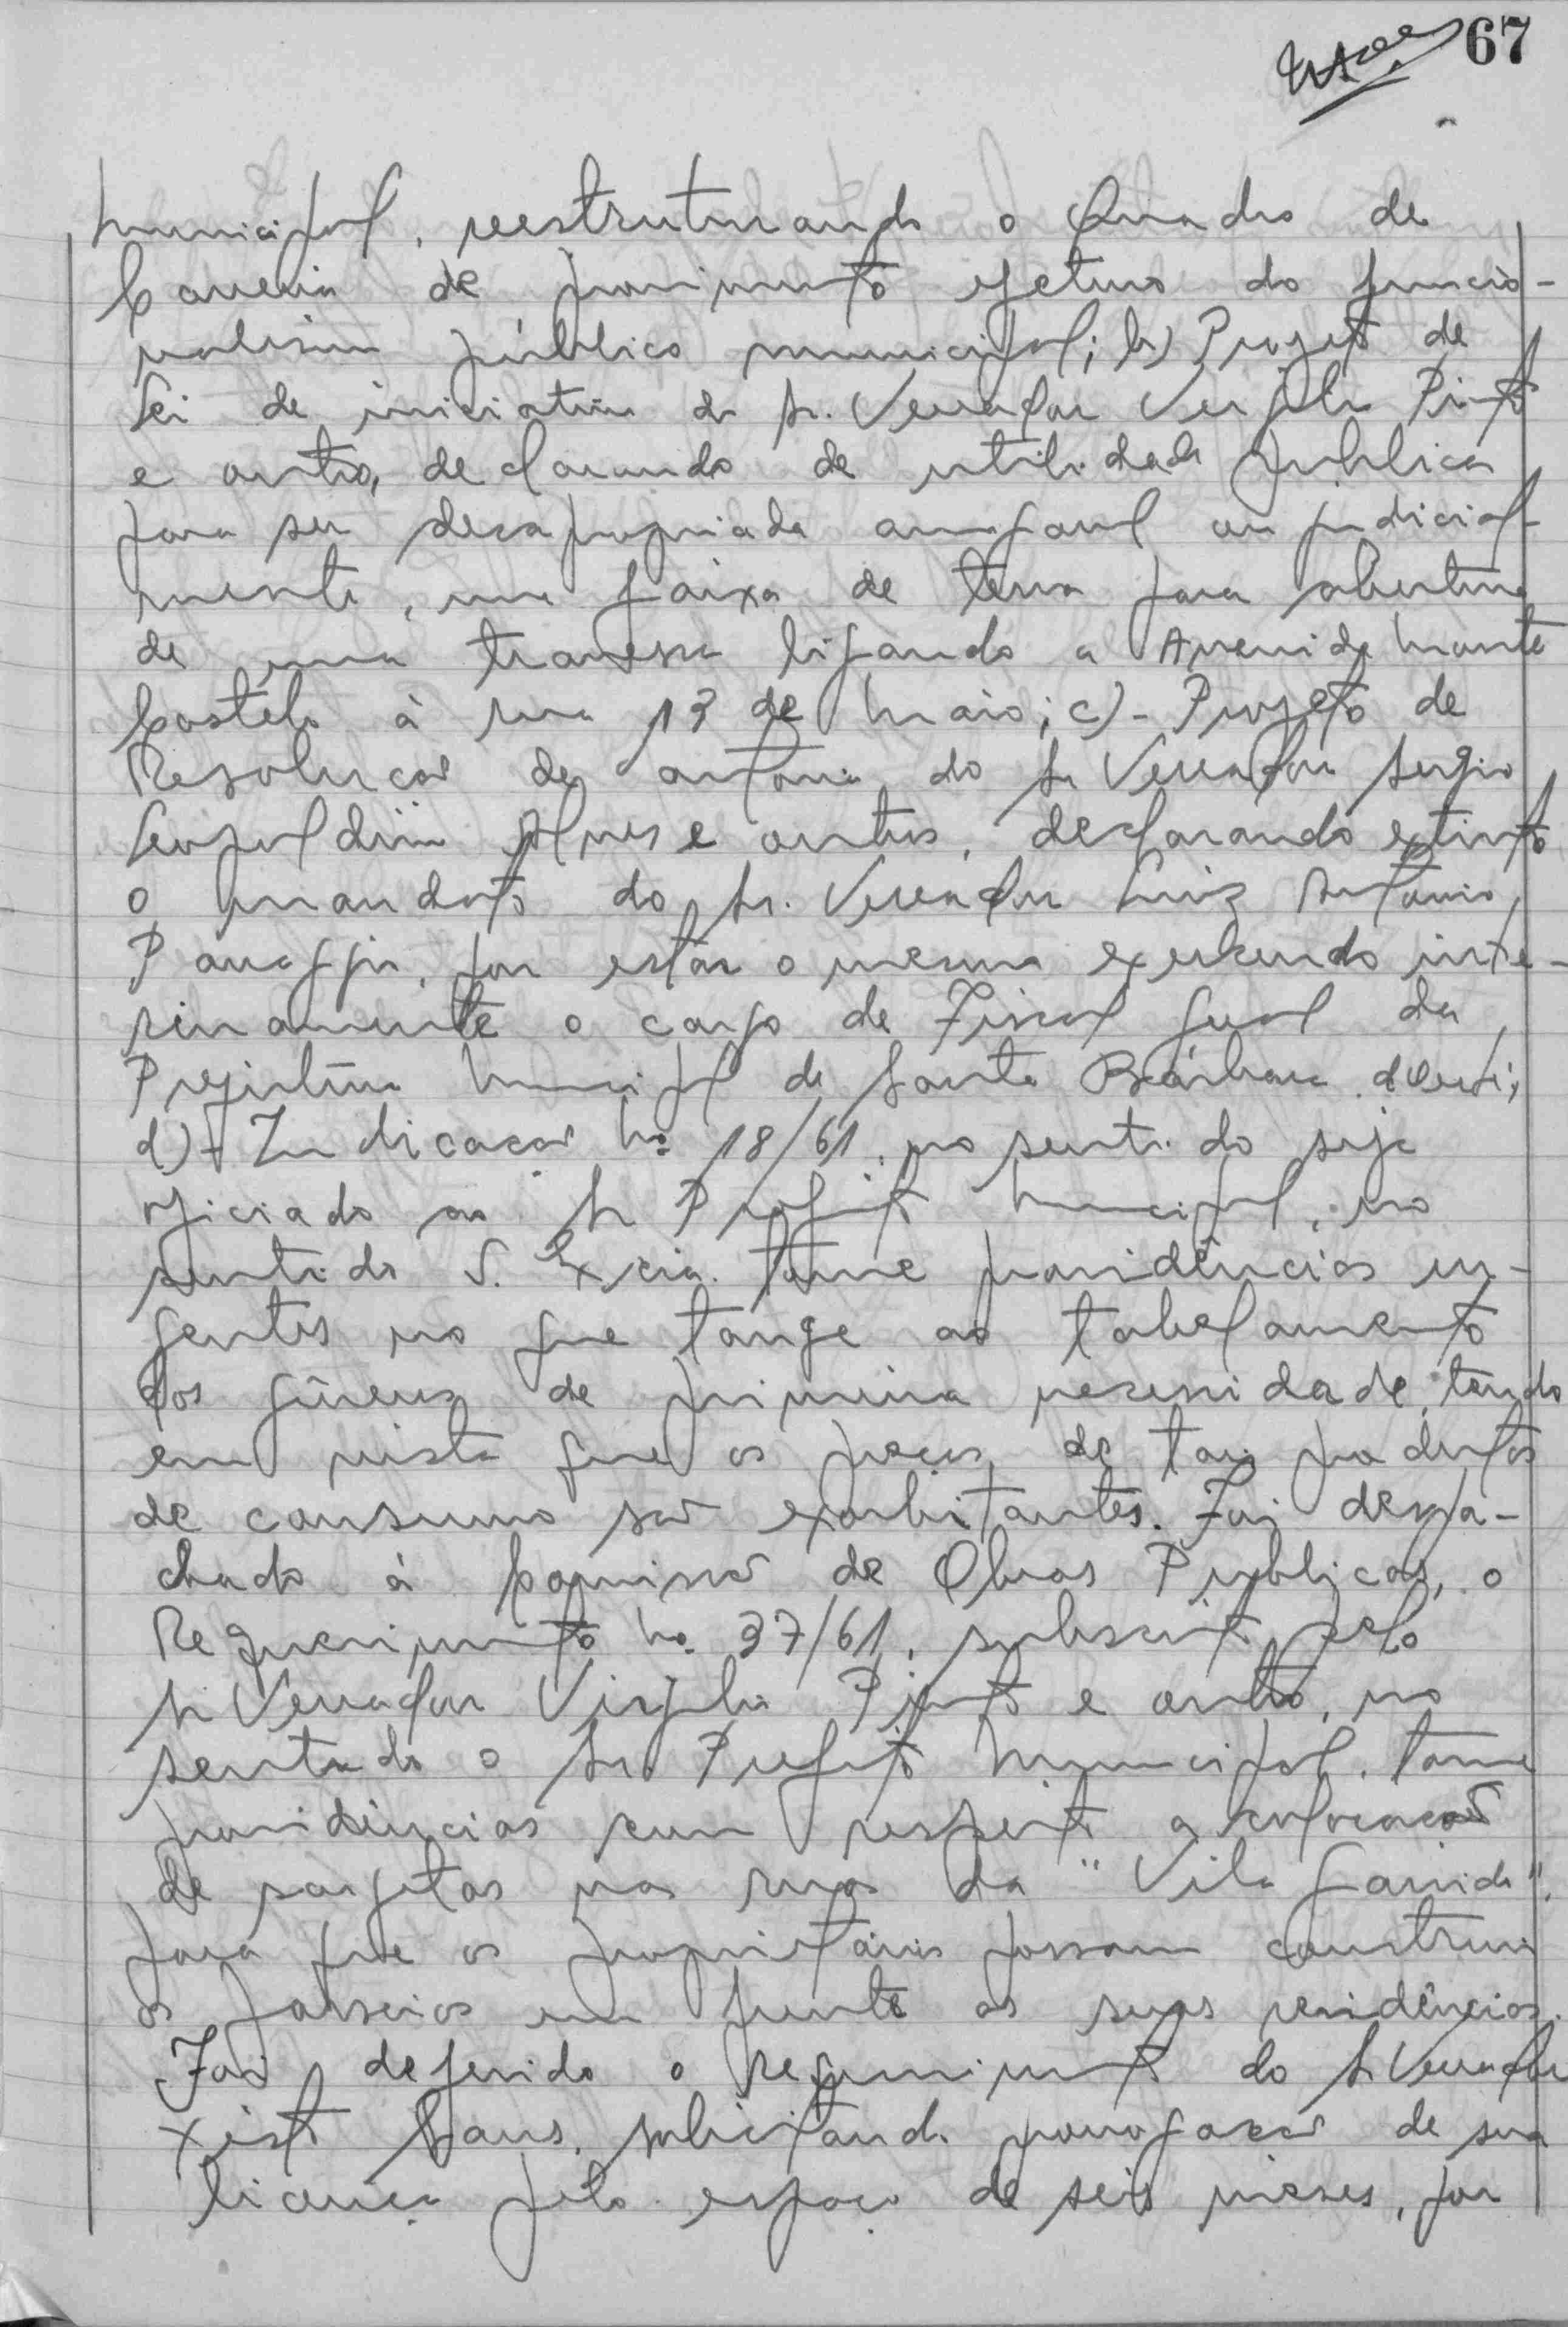 67
Municipal, reestruturando o Quadro de
Carreira de provimento efetivo do funcio-
nalismo público municipal; b) Projeto de
Lei de iniciativa do Sr. Vereador Vergilio Pinto
e outro, declarando de utilidade pública
para ser desapropriada amigavel ou judicial-
mente, uma faixa de terra para abertura
de uma travessa ligando a Avenida Monte
Castelo à rua 13 de Maio; c) - Projeto de
Resolução de autoria do Sr Vereador Sergio
Leopoldino Alves e outros, declarando extinto
o mandato do Sr. Vereador Luiz Antonio
Panaggio, por estar o mesmo exercendo inte-
rinamente o cargo de Fiscal Geral da
Prefeitura Municipal de Santa Bárbara d'Oeste;
d) - Indicação No 18/61, no sentido seja
oficiado ao Sr Prefeito Municipal, no
sentido S. Excia. tome providências ur-
gentes no que tange ao tabelamento
dos gêneros de primeira necessidade, tendo
em vista que os preços de tais produtos
de consumo são exorbitantes. Foi despa-
chado à Comissão de Obras Publicas, o
Requerimento No. 37/61, subscrito pelo
Sr Vereador Virgilio Pinto e outro, no
sentido o Sr Prefeito Municipal, tome
providências com respeito a colocação
de sarjetas nas ruas da "Vila Garrido",
para que os proprietários possam construir
os passeios em frente as suas residências.
Foi deferido o requerimento do Sr Vereador
Xisto solicitando prorrogação de sua
licença pelo espaço de seis mêses, por